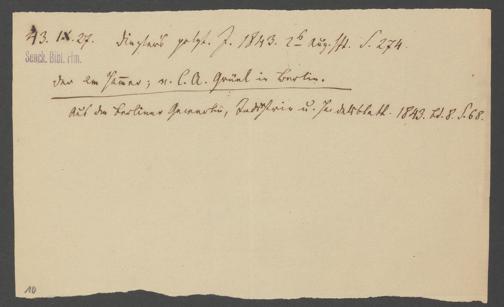 43. IX. 27. Dinglers polyt. J. 1843. 2s Aug. Hft. S. 274.
Senck. Bibl. Ffm.
der am Hammer; v. C. A. Grüel in Berlin.
Aus dem Berliner Gewerbe, Industrie u. Handelsblatt. 1843. Bd. 8. S. 68.
10